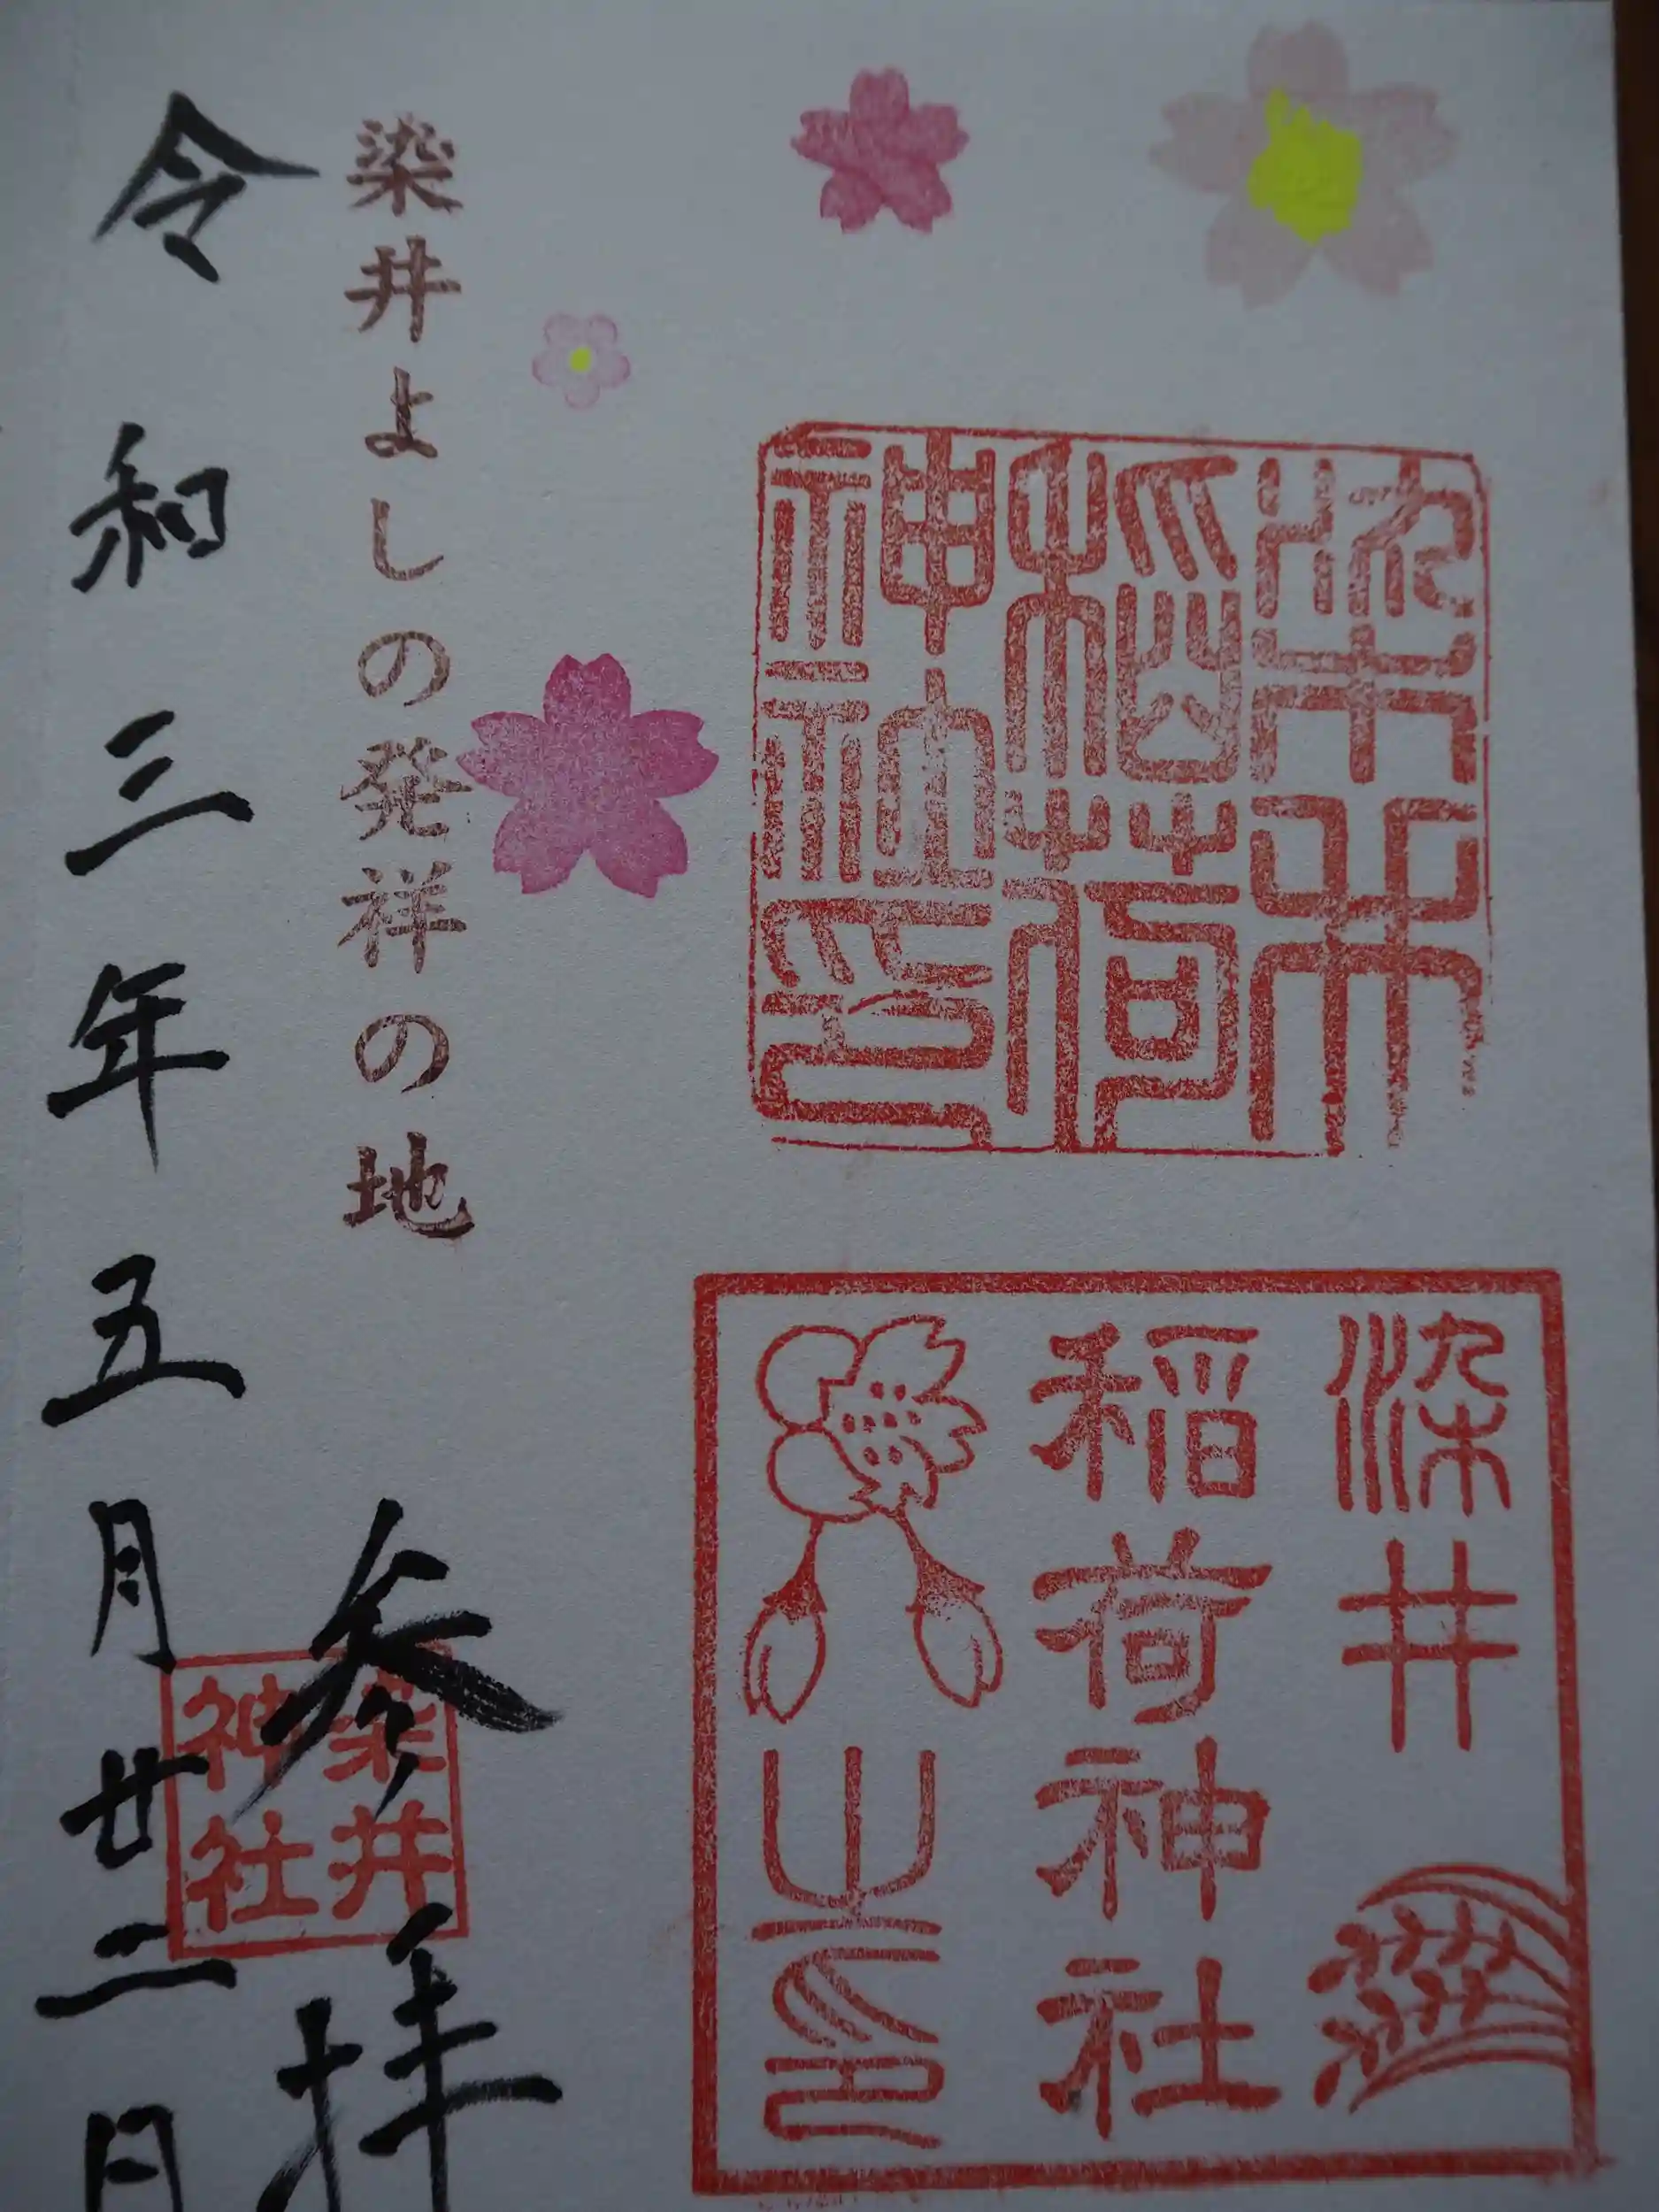 染井
稲荷
神社印
染井
稲荷神社
之印
染井よしの発祥の地
参拝
染井
神社
令和三年五月廿二日